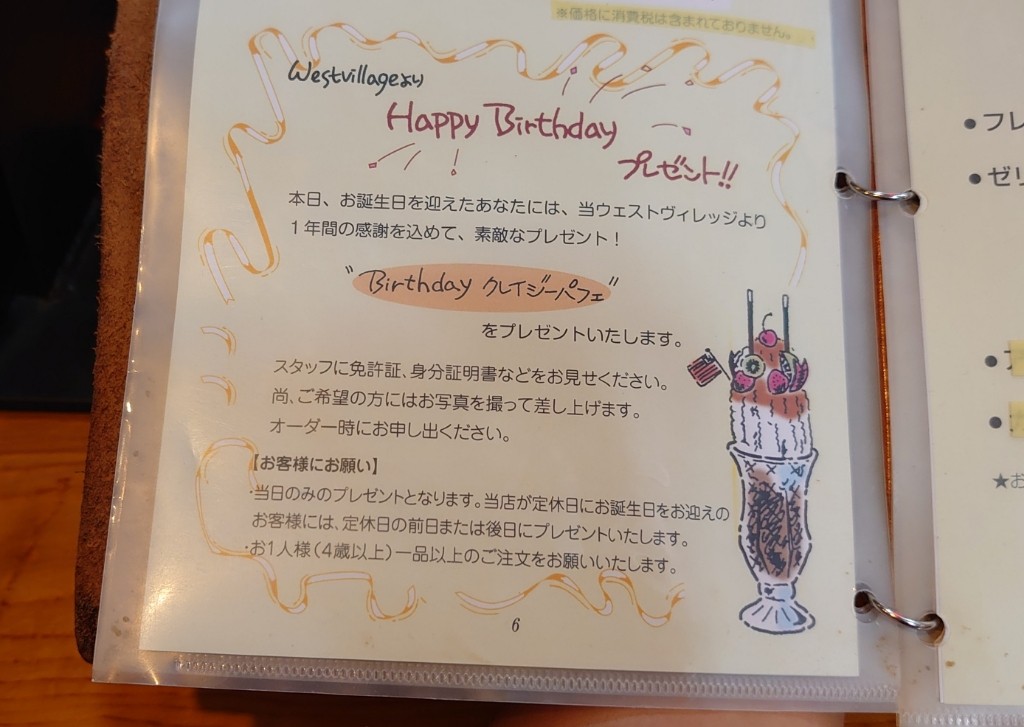 ※価格に消費税は含まれておりません。
Westvillageより
Happy Birthday
プレゼント!!
本日、お誕生日を迎えたあなたには、当ウェストヴィレッジより
１年間の感謝を込めて、素敵なプレゼント！
"Birthday クレイジーパフェ"
をプレゼントいたします。
スタッフに免許証、身分証明書などをお見せください。
尚、ご希望の方にはお写真を撮って差し上げます。
オーダー時にお申し出ください。
【お客様にお願い】
・当日のみのプレゼントとなります。当店が定休日にお誕生日をお迎えの
お客様には、定休日の前日または後日にプレゼントいたします。
・お1人様（4歳以上）一品以上のご注文をお願いいたします。
6
●フレ
●ゼリ
●
●
★お